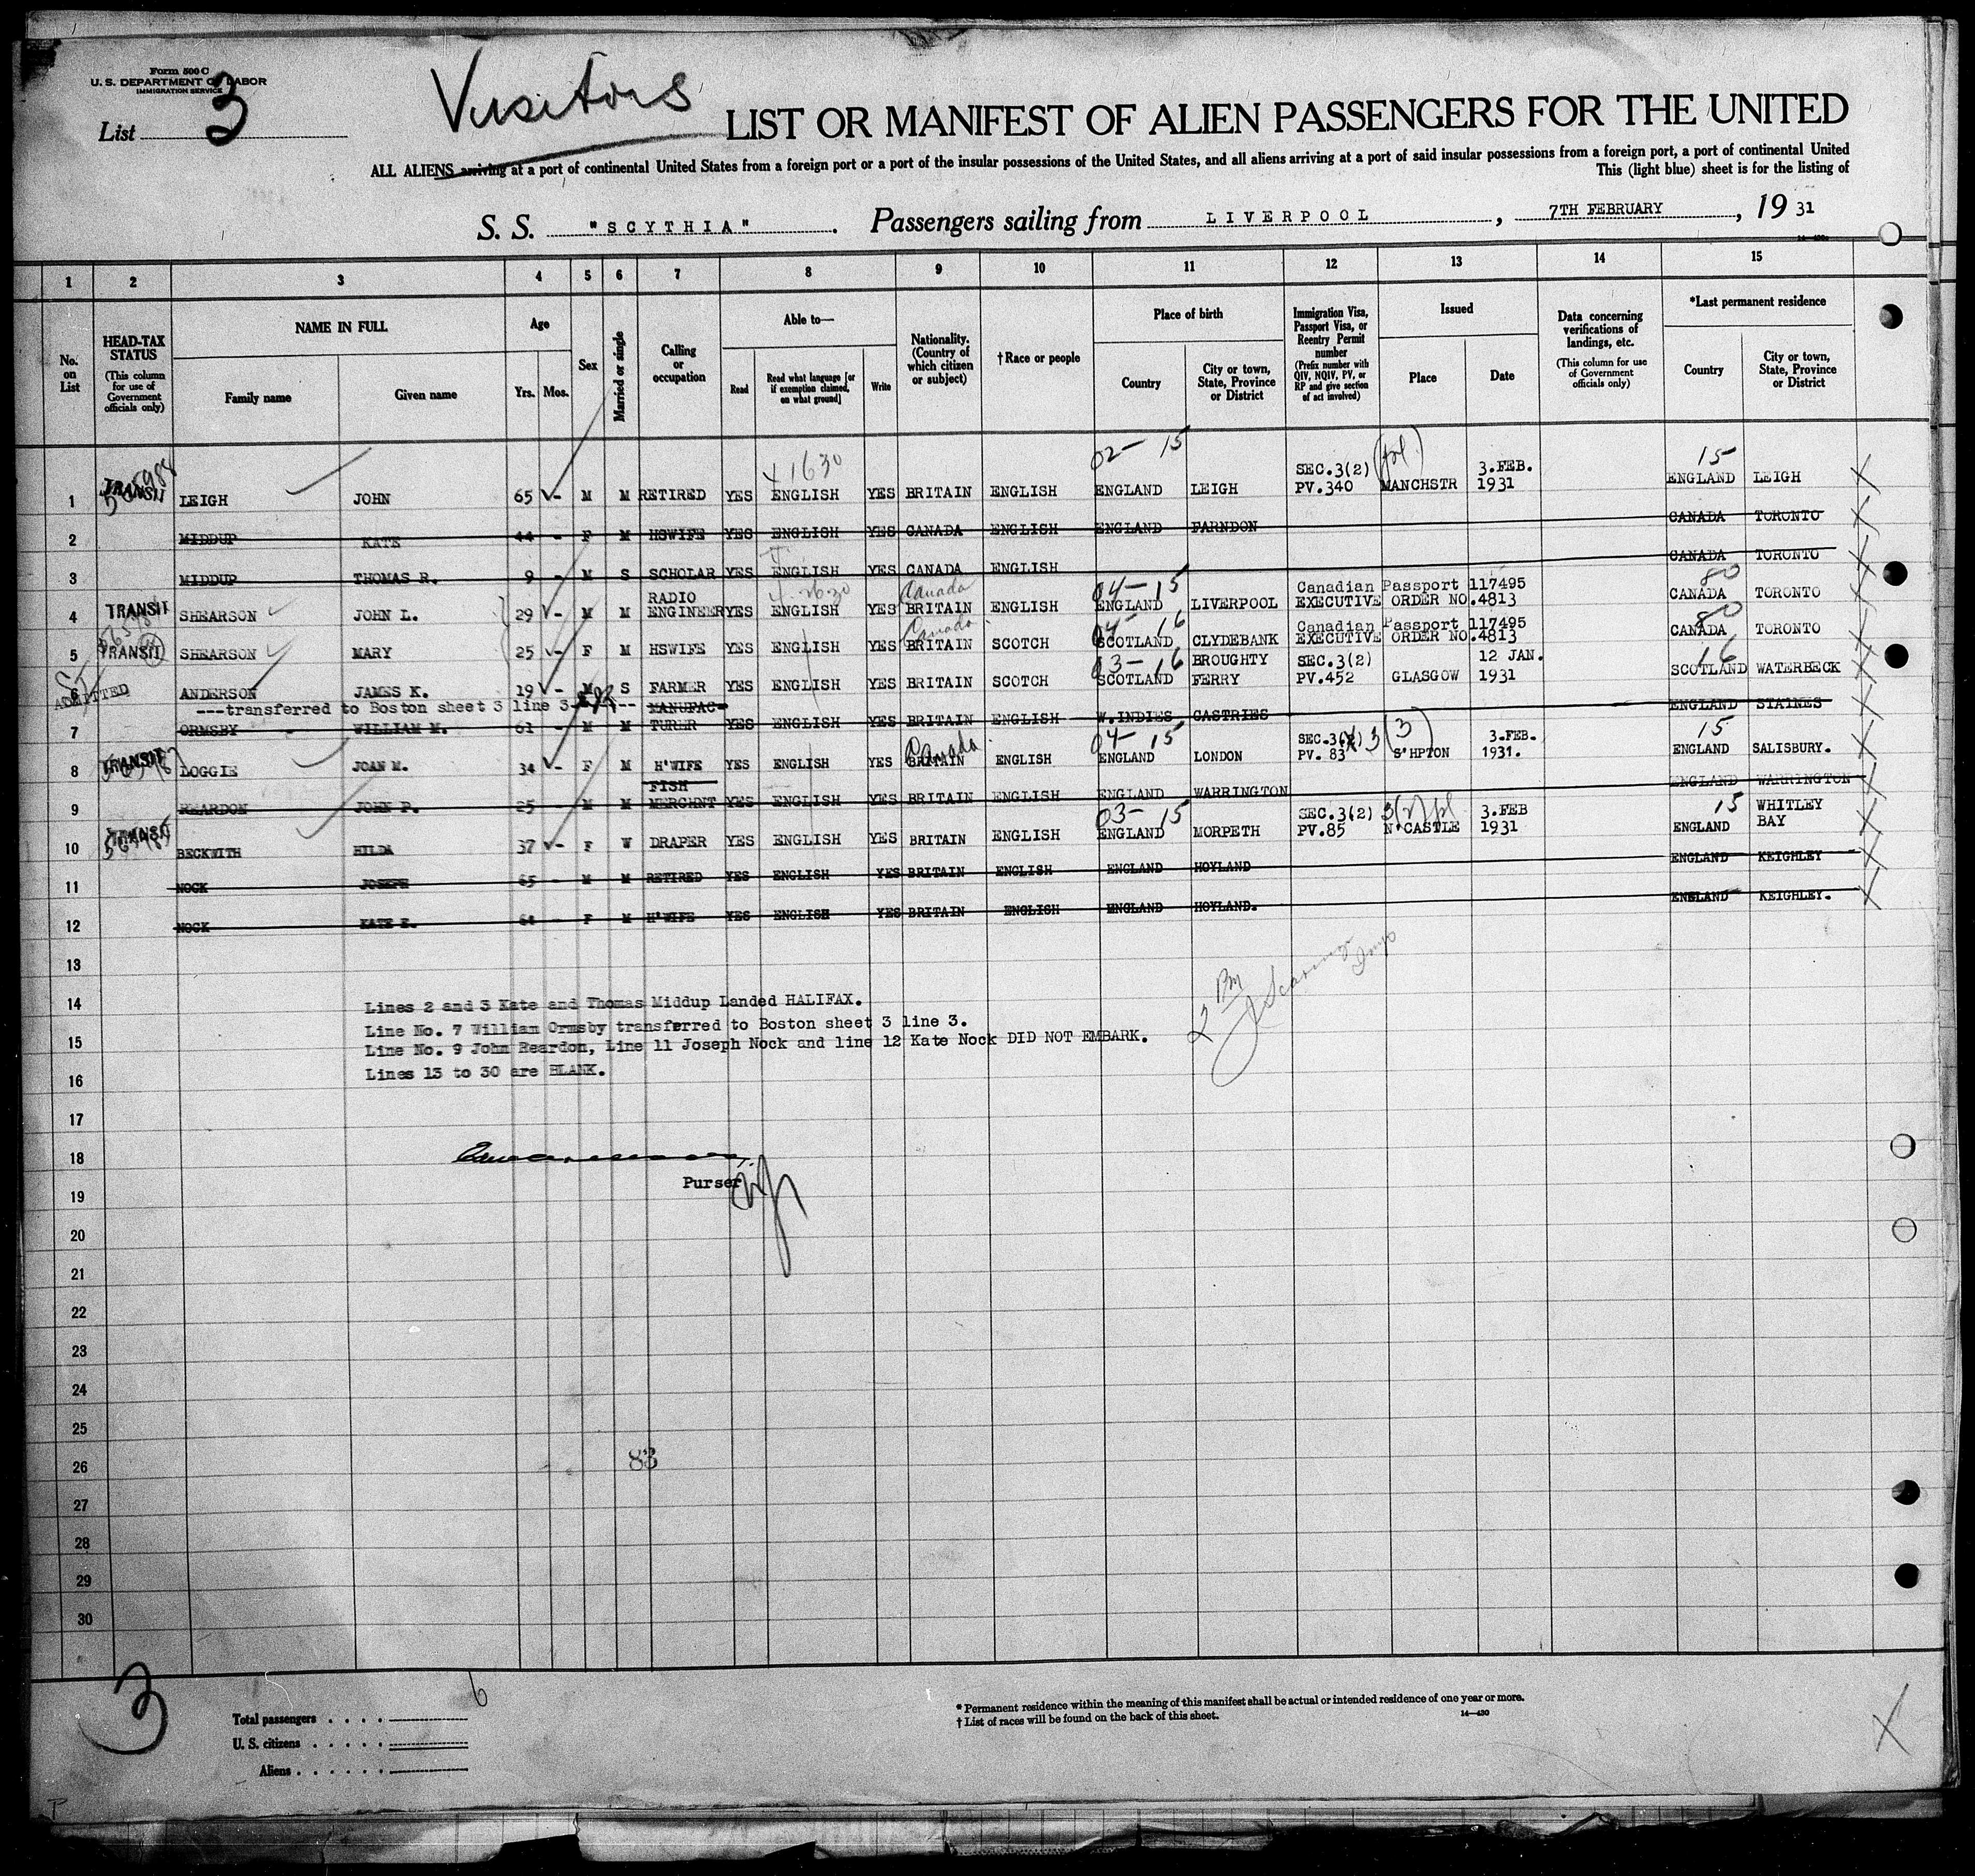 Form 500 C
U. S. DEPARTMENT OF LABOR
IMMIGRATION SERVICE
List 3
Visitors
LIST OR MANIFEST OF ALIEN PASSENGERS FOR THE UNITED
ALL ALIENS arriving at a port of continental United States from a foreign port or a port of the insular possessions of the United States, and all aliens arriving at a port of said insular possessions from a foreign port, a port of continental United
This (light blue) sheet is for the listing of
S. S. "SCYTHIA". Passengers sailing from LIVERPOOL, 7TH FEBRUARY, 19 31
14-430
1 2 3 4 5 6 7 8 9 10 11 12 13 14 15
No. on List
HEAD-TAX STATUS (This column for use of Government officials only)
NAME IN FULL Family name Given name
Age Yrs. Mos.
Sex
Married or single
Calling or occupation
Able to— Read Read what language [or if exemption claimed, on what ground] Write
Nationality. (Country of which citizen or subject)
†Race or people
Place of birth Country City or town, State, Province or District
Immigration Visa, Passport Visa, or Reentry Permit number (Prefix number with QIV, NQIV, PV, or RP and give section of act involved)
Issued Place Date
Data concerning verifications of landings, etc. (This column for use of Government officials only)
*Last permanent residence Country City or town, State, Province or District
02- 15 15
1 TRANSIT LEIGH JOHN 65 - M M RETIRED YES ENGLISH YES BRITAIN ENGLISH ENGLAND LEIGH SEC.3(2) PV.340 MANCHSTR 3.FEB. 1931 ENGLAND LEIGH
2 MIDDUP KATE 44 - F M HSWIFE YES ENGLISH YES CANADA ENGLISH ENGLAND FARNDON CANADA TORONTO
3 MIDDUP THOMAS R. 9 - M S SCHOLAR YES ENGLISH YES CANADA ENGLISH CANADA TORONTO
Canada 04- 15 80
4 TRANSIT SHEARSON JOHN L. 29 - M M RADIO ENGINEER YES ENGLISH YES BRITAIN ENGLISH ENGLAND LIVERPOOL Canadian Passport 117495 EXECUTIVE ORDER NO.4813 CANADA TORONTO
Canada 04- 16 80
5 TRANSIT SHEARSON MARY 25 - F M HSWIFE YES ENGLISH YES BRITAIN SCOTCH SCOTLAND CLYDEBANK Canadian Passport 117495 EXECUTIVE ORDER NO.4813 CANADA TORONTO
03- 16 16
6 ADMITTED ANDERSON JAMES K. 19 - M S FARMER YES ENGLISH YES BRITAIN SCOTCH SCOTLAND BROUGHTY FERRY SEC.3(2) PV.452 GLASGOW 12 JAN. 1931 SCOTLAND WATERBECK
---transferred to Boston sheet 3 line 3---
7 ORMSBY WILLIAM M. 61 - M M MANUFAC- TURER YES ENGLISH YES BRITAIN ENGLISH W.INDIES CASTRIES ENGLAND STAINES
Canada 04- 15 15
8 TRANSIT LOGGIE JOAN M. 34 - F M H'WIFE YES ENGLISH YES BRITAIN ENGLISH ENGLAND LONDON SEC.3( ) 3 (3) PV. 83 S'HPTON 3.FEB. 1931. ENGLAND SALISBURY.
9 REARDON JOHN P. 25 - M M FISH MERCHNT YES ENGLISH YES BRITAIN ENGLISH ENGLAND WARRINGTON ENGLAND WARRINGTON
03- 15 15
10 TRANSIT BECKWITH HILDA 37 - F W DRAPER YES ENGLISH YES BRITAIN ENGLISH ENGLAND MORPETH SEC.3(2) PV.85 N'CASTLE 3.FEB 1931 ENGLAND WHITLEY BAY
11 NOCK JOSEPH 65 - M M RETIRED YES ENGLISH YES BRITAIN ENGLISH ENGLAND HOYLAND ENGLAND KEIGHLEY
12 NOCK KATE E. 64 - F M H'WIFE YES ENGLISH YES BRITAIN ENGLISH ENGLAND HOYLAND. ENGLAND KEIGHLEY.
13
14 Lines 2 and 3 Kate and Thomas Middup Landed HALIFAX.
Line No. 7 William Ormsby transferred to Boston sheet 3 line 3.
15 Line No. 9 John Reardon, Line 11 Joseph Nock and line 12 Kate Nock DID NOT EMBARK.
16 Lines 13 to 30 are BLANK.
17
18
Purser
19
20
21
22
23
24
25
26 83
27
28
29
30
3
6
Total passengers
U. S. citizens
Aliens
* Permanent residence within the meaning of this manifest shall be actual or intended residence of one year or more.
† List of races will be found on the back of this sheet.
14-430